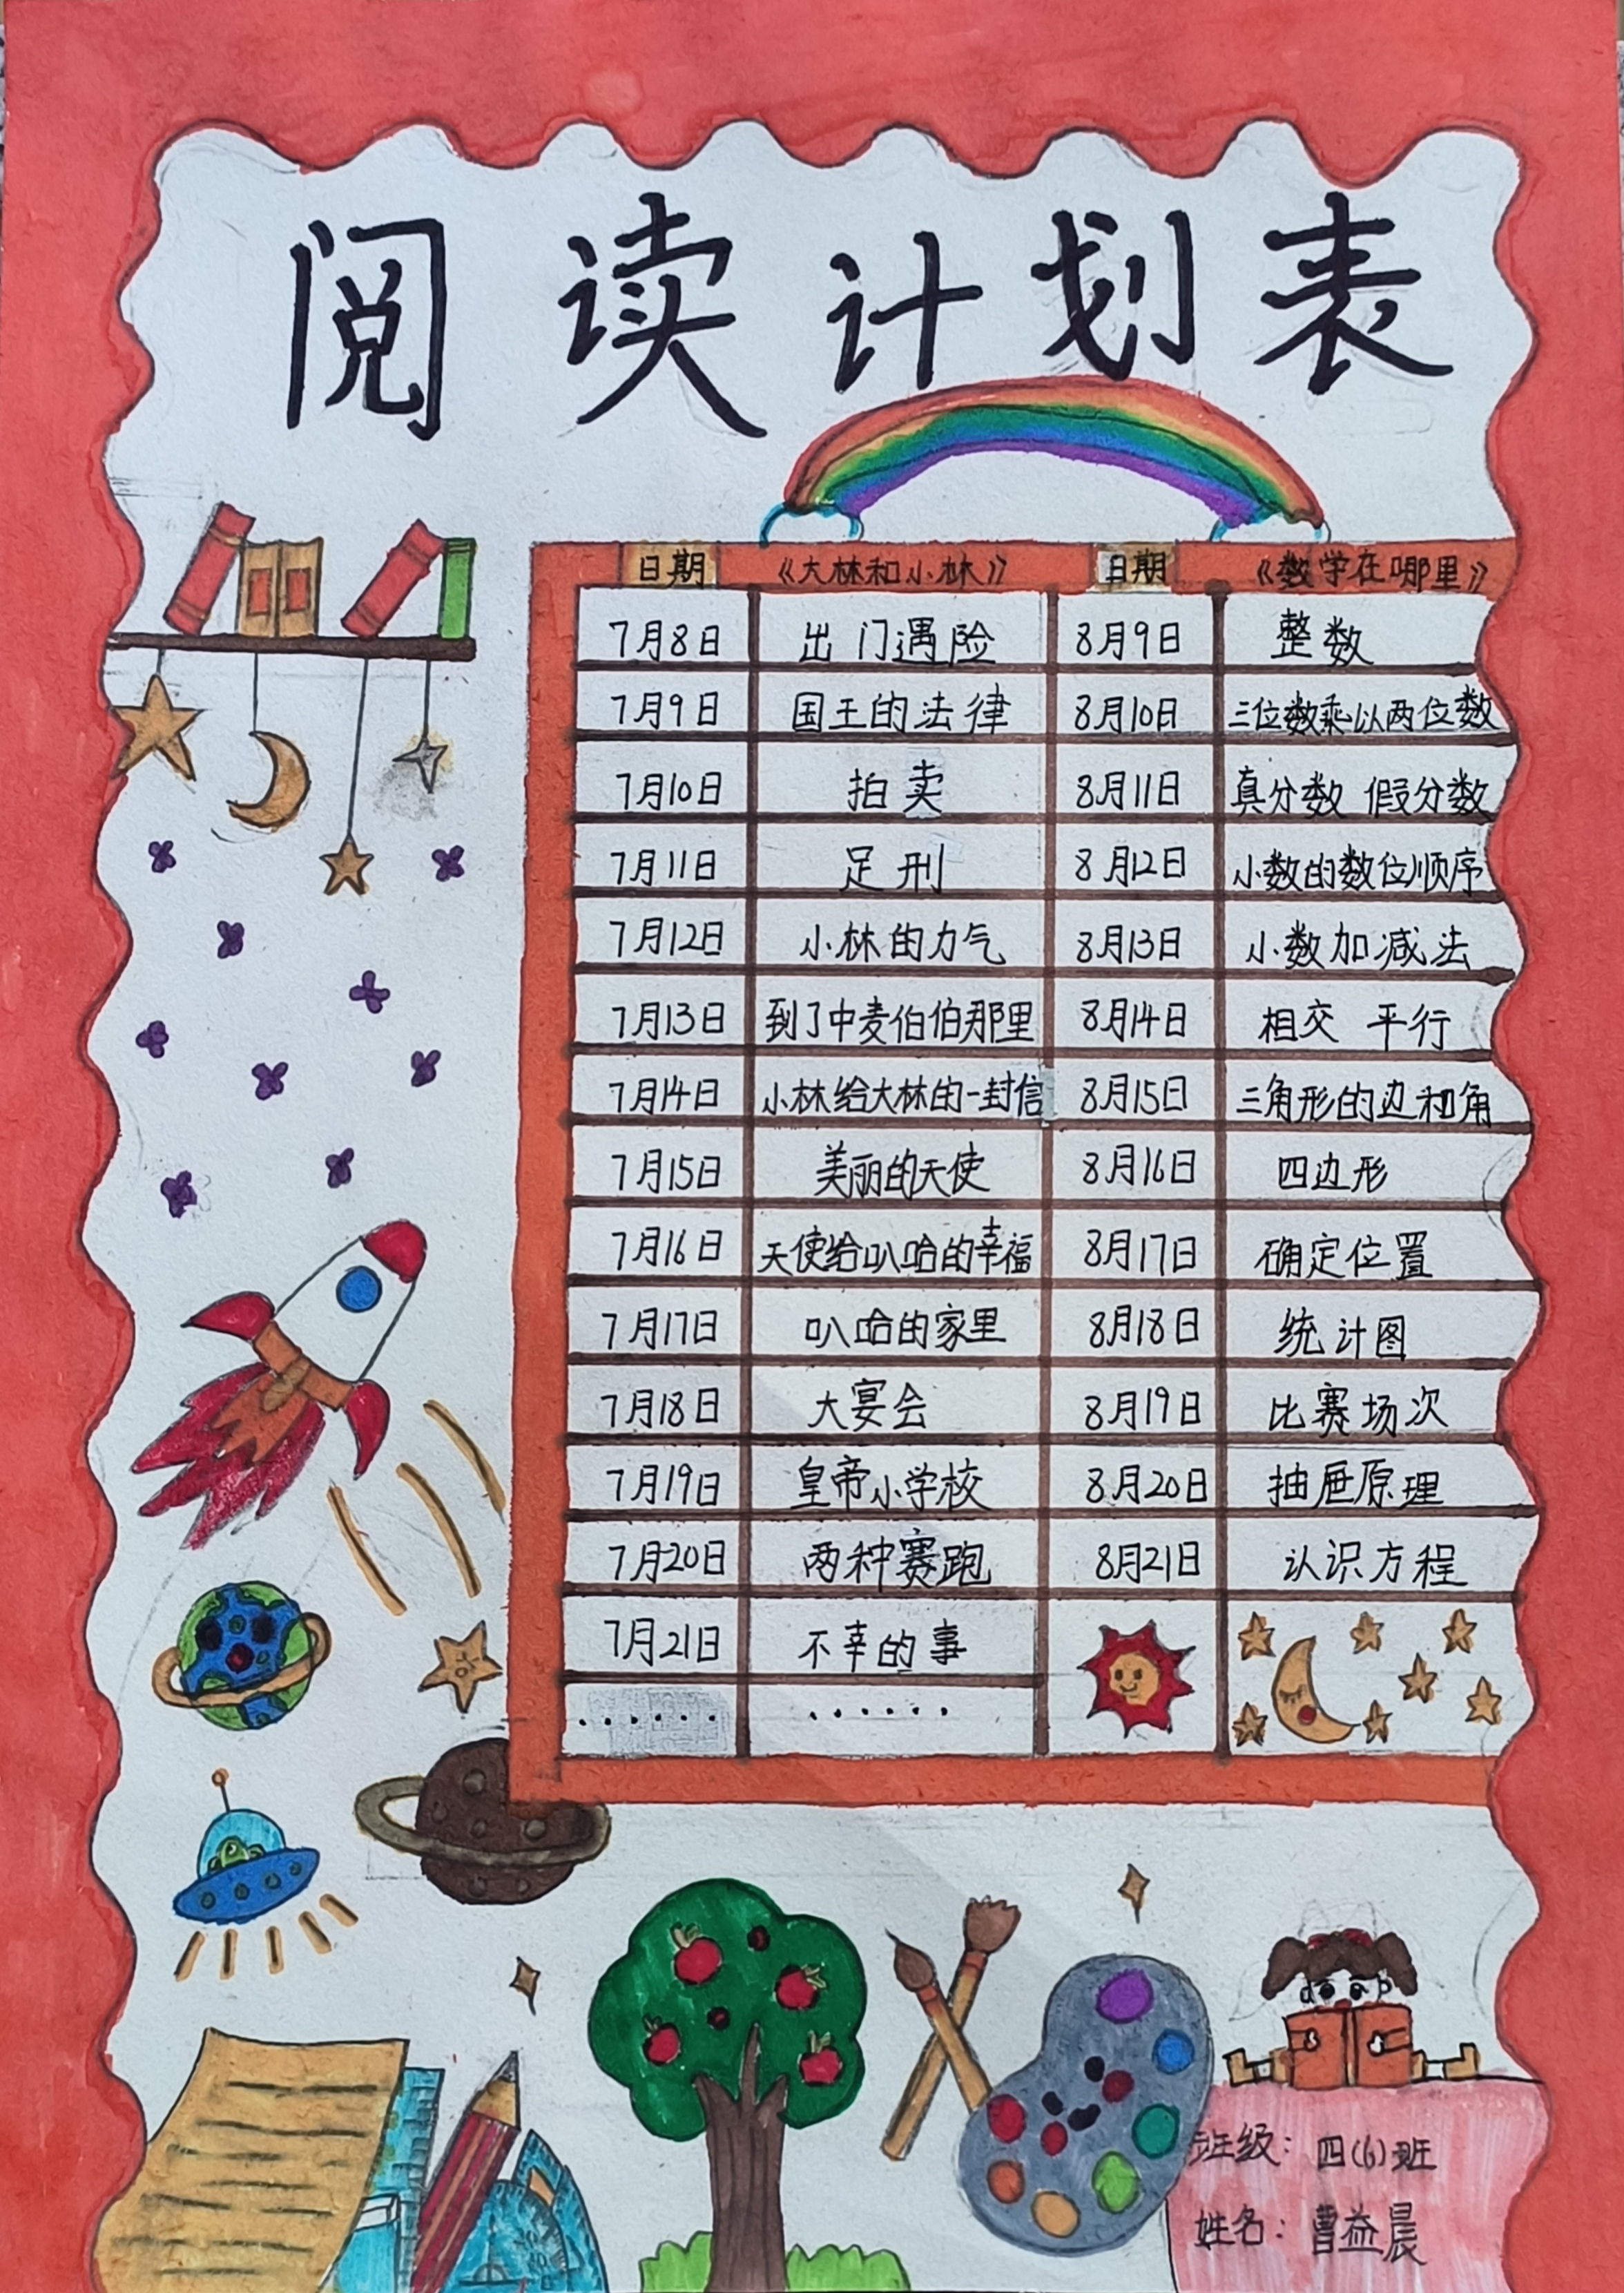 阅读计划表
日期 《大林和小林》 日期 《数学在哪里》
7月8日 出门遇险 8月9日 整数
7月9日 国王的法律 8月10日 三位数乘以两位数
7月10日 拍卖 8月11日 真分数 假分数
7月11日 足刑 8月12日 小数的数位顺序
7月12日 小林的力气 8月13日 小数加减法
7月13日 到了中麦伯伯那里 8月14日 相交 平行
7月14日 小林给大林的一封信 8月15日 三角形的边和角
7月15日 美丽的天使 8月16日 四边形
7月16日 天使给叭哈的幸福 8月17日 确定位置
7月17日 叭哈的家里 8月18日 统计图
7月18日 大宴会 8月19日 比赛场次
7月19日 皇帝小学校 8月20日 抽屉原理
7月20日 两种赛跑 8月21日 认识方程
7月21日 不幸的事
…… ……
班级：四(6)班
姓名：曹益晨